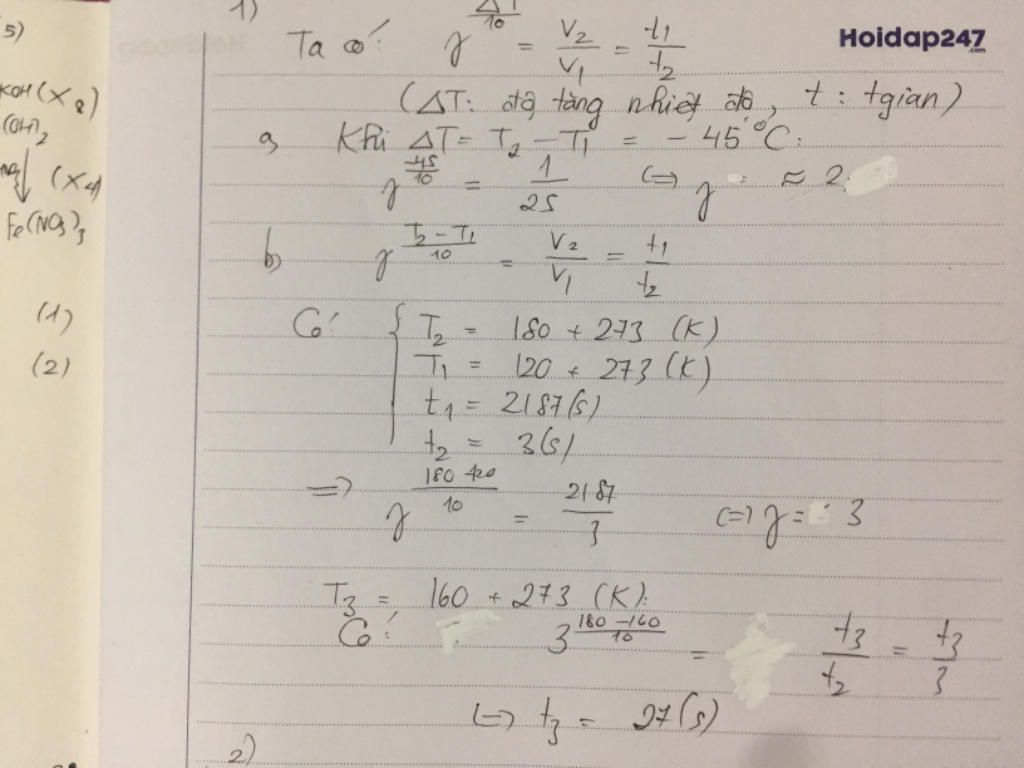 5)
KOH (X2)
(OH)2
(X4)
Fe(NO3)3
(1)
(2)
1)
Hoidap247
.com
Ta có: γ^(ΔT/10) = V2/V1 = t1/t2
(ΔT: độ tăng nhiệt độ, t: tgian)
a, Khi ΔT = T2 - T1 = -45°C:
γ^(-45/10) = 1/25 <=> γ ≈ 2,
b, γ^((T2 - T1)/10) = V2/V1 = t1/t2
Có: { T2 = 180 + 273 (K)
T1 = 120 + 273 (K)
t1 = 2187(s)
t2 = 3(s)
=> γ^((180-120)/10) = 2187/3 <=> γ = 3
T3 = 160 + 273 (K):
Có: 3^((180-160)/10) = t3/t2 = t3/3
<=> t3 = 27(s)
2)